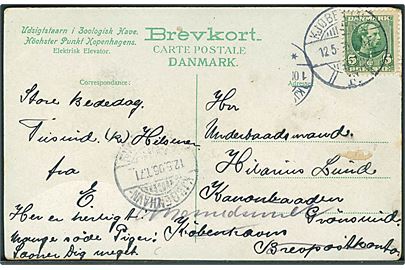 Udsigtstaarn i Zoologisk Have.
Høchster Punkt Kopenhagens.
Elektrisk Elevator.
Brevkort.
CARTE POSTALE
DANMARK.
DANMARK
5 5
KJØBE
12.5
Correspondance:
Adresse
Store Bededag.
Tusind (k) Hilsner
fra
E.
Her er herligt.
Mange søde Piger.
Savner Dig meget.
KJØBENHAVN
12.5.05
Hr
Underbaadsmand
Hilarius Lund
Kanonbaaden
Grønsund
Københavns
Brevpostkontor